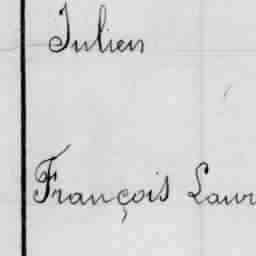 Julien
François Laur